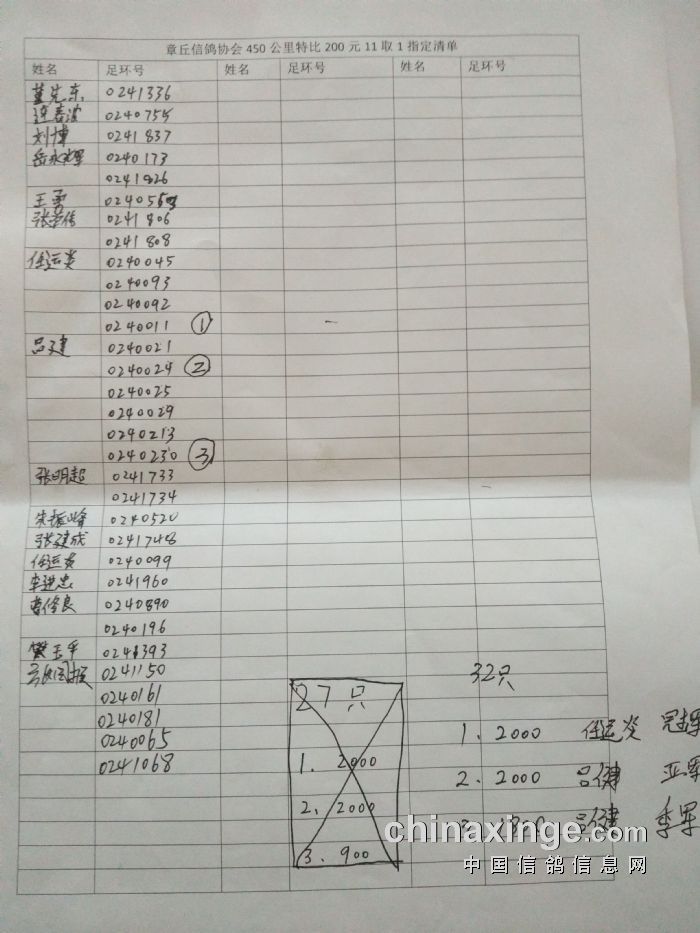 章丘信鸽协会450公里特比200元11取1指定清单
姓名 足环号 姓名 足环号 姓名 足环号
董先东 0241336
连春波 0240755
刘博 0241837
岳永辉 0240173
0241826
王勇
张 0241806
0241808
任运炎 0240045
0240093
0240092
0240011 ①
吕建 0240021
0240024 ②
0240025
0240029
0240213
0240230 ③
张明超 0241733
0241734
朱振峰 0240520
张建成 0241748
任运炎 0240099
李进忠 0241960
曹修良 0240890
0240196
樊玉平 0241393
0241150
0240161
0240181
0240065
0241068
27只
1. 2000
2. 2000
3. 900
32只
1. 2000 任运炎 冠军
2. 2000 吕健 亚军
3. 1800 吕健 季军
chinaxinge.com
中国信鸽信息网